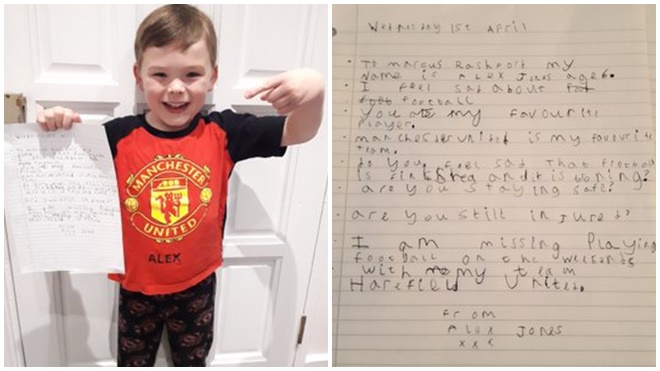 MANCHESTER
UNITED
ALEX
Wednesday 1st April
To marcus Rashford my
name is Alex Jones age 6.
I feel sad about fot
foot football
You are my favourite
player.
manchester united is my favourite
team.
do you feel sad that football
is finished and it is boring?
are you staying safe?
are you still injured?
I am missing playing
football on the weekends
with my team
Harefield United.
from
Alex Jones
x x x